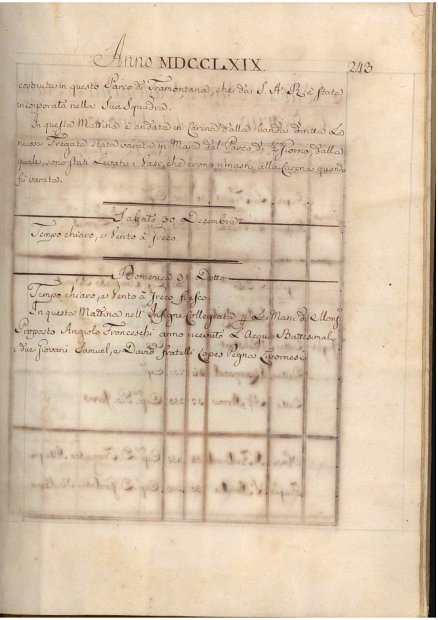 Anno MDCCLXIX.
243
costruita in questo Parco di Tramontana, che da S. A. R. è stata
incorporata nella Sua Squadra.
In questa Mattina è andata in Carena dalla banda dritta La
nuova Fregata stata varata in Mare dal Parco di ½ Giorno, dalla
quale sono stati Levati i Vasi, che erono rimasti alla Carena quando
fu varata.
Sabato 30 Decembre
Tempo chiaro, e Vento à Greco.
Domenica 31 Detto
Tempo chiaro, e Vento à Greco fresco.
In questa Mattina nell' Insigne Collegiata Le Mani di Mons.
Proposto Angiolo Franceschi anno ricevuto L'Acque Battesimali
i due Giovani Samuel, e David fratelli Lopes Pegna Livornesi